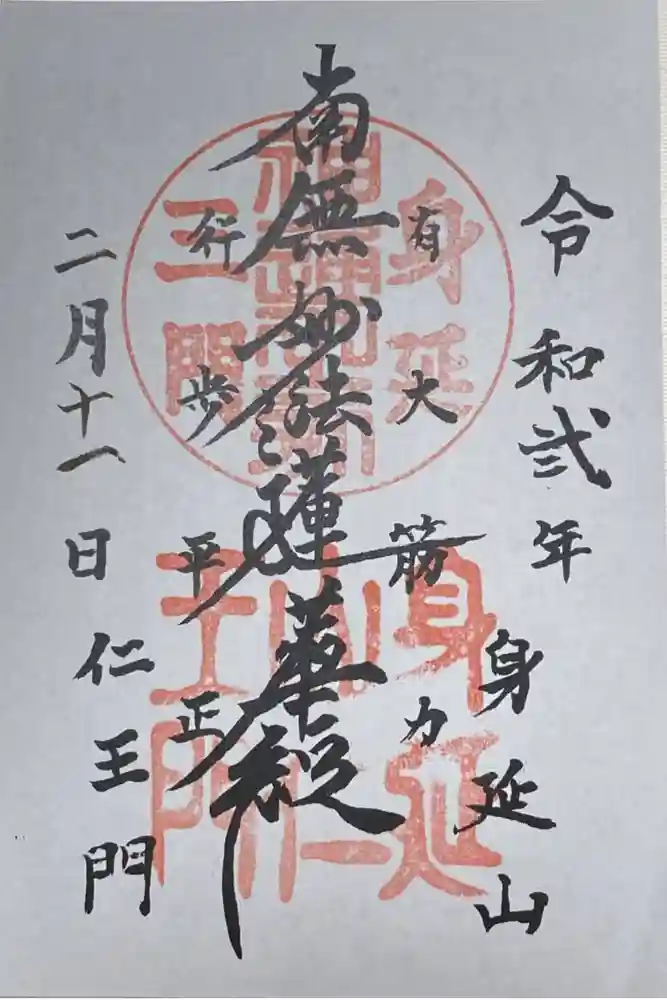 令和弐年
身延山
有大筋力
南無妙法蓮華経
行歩平正
二月十一日
仁王門
身延
三門
身延
山
仁
王門